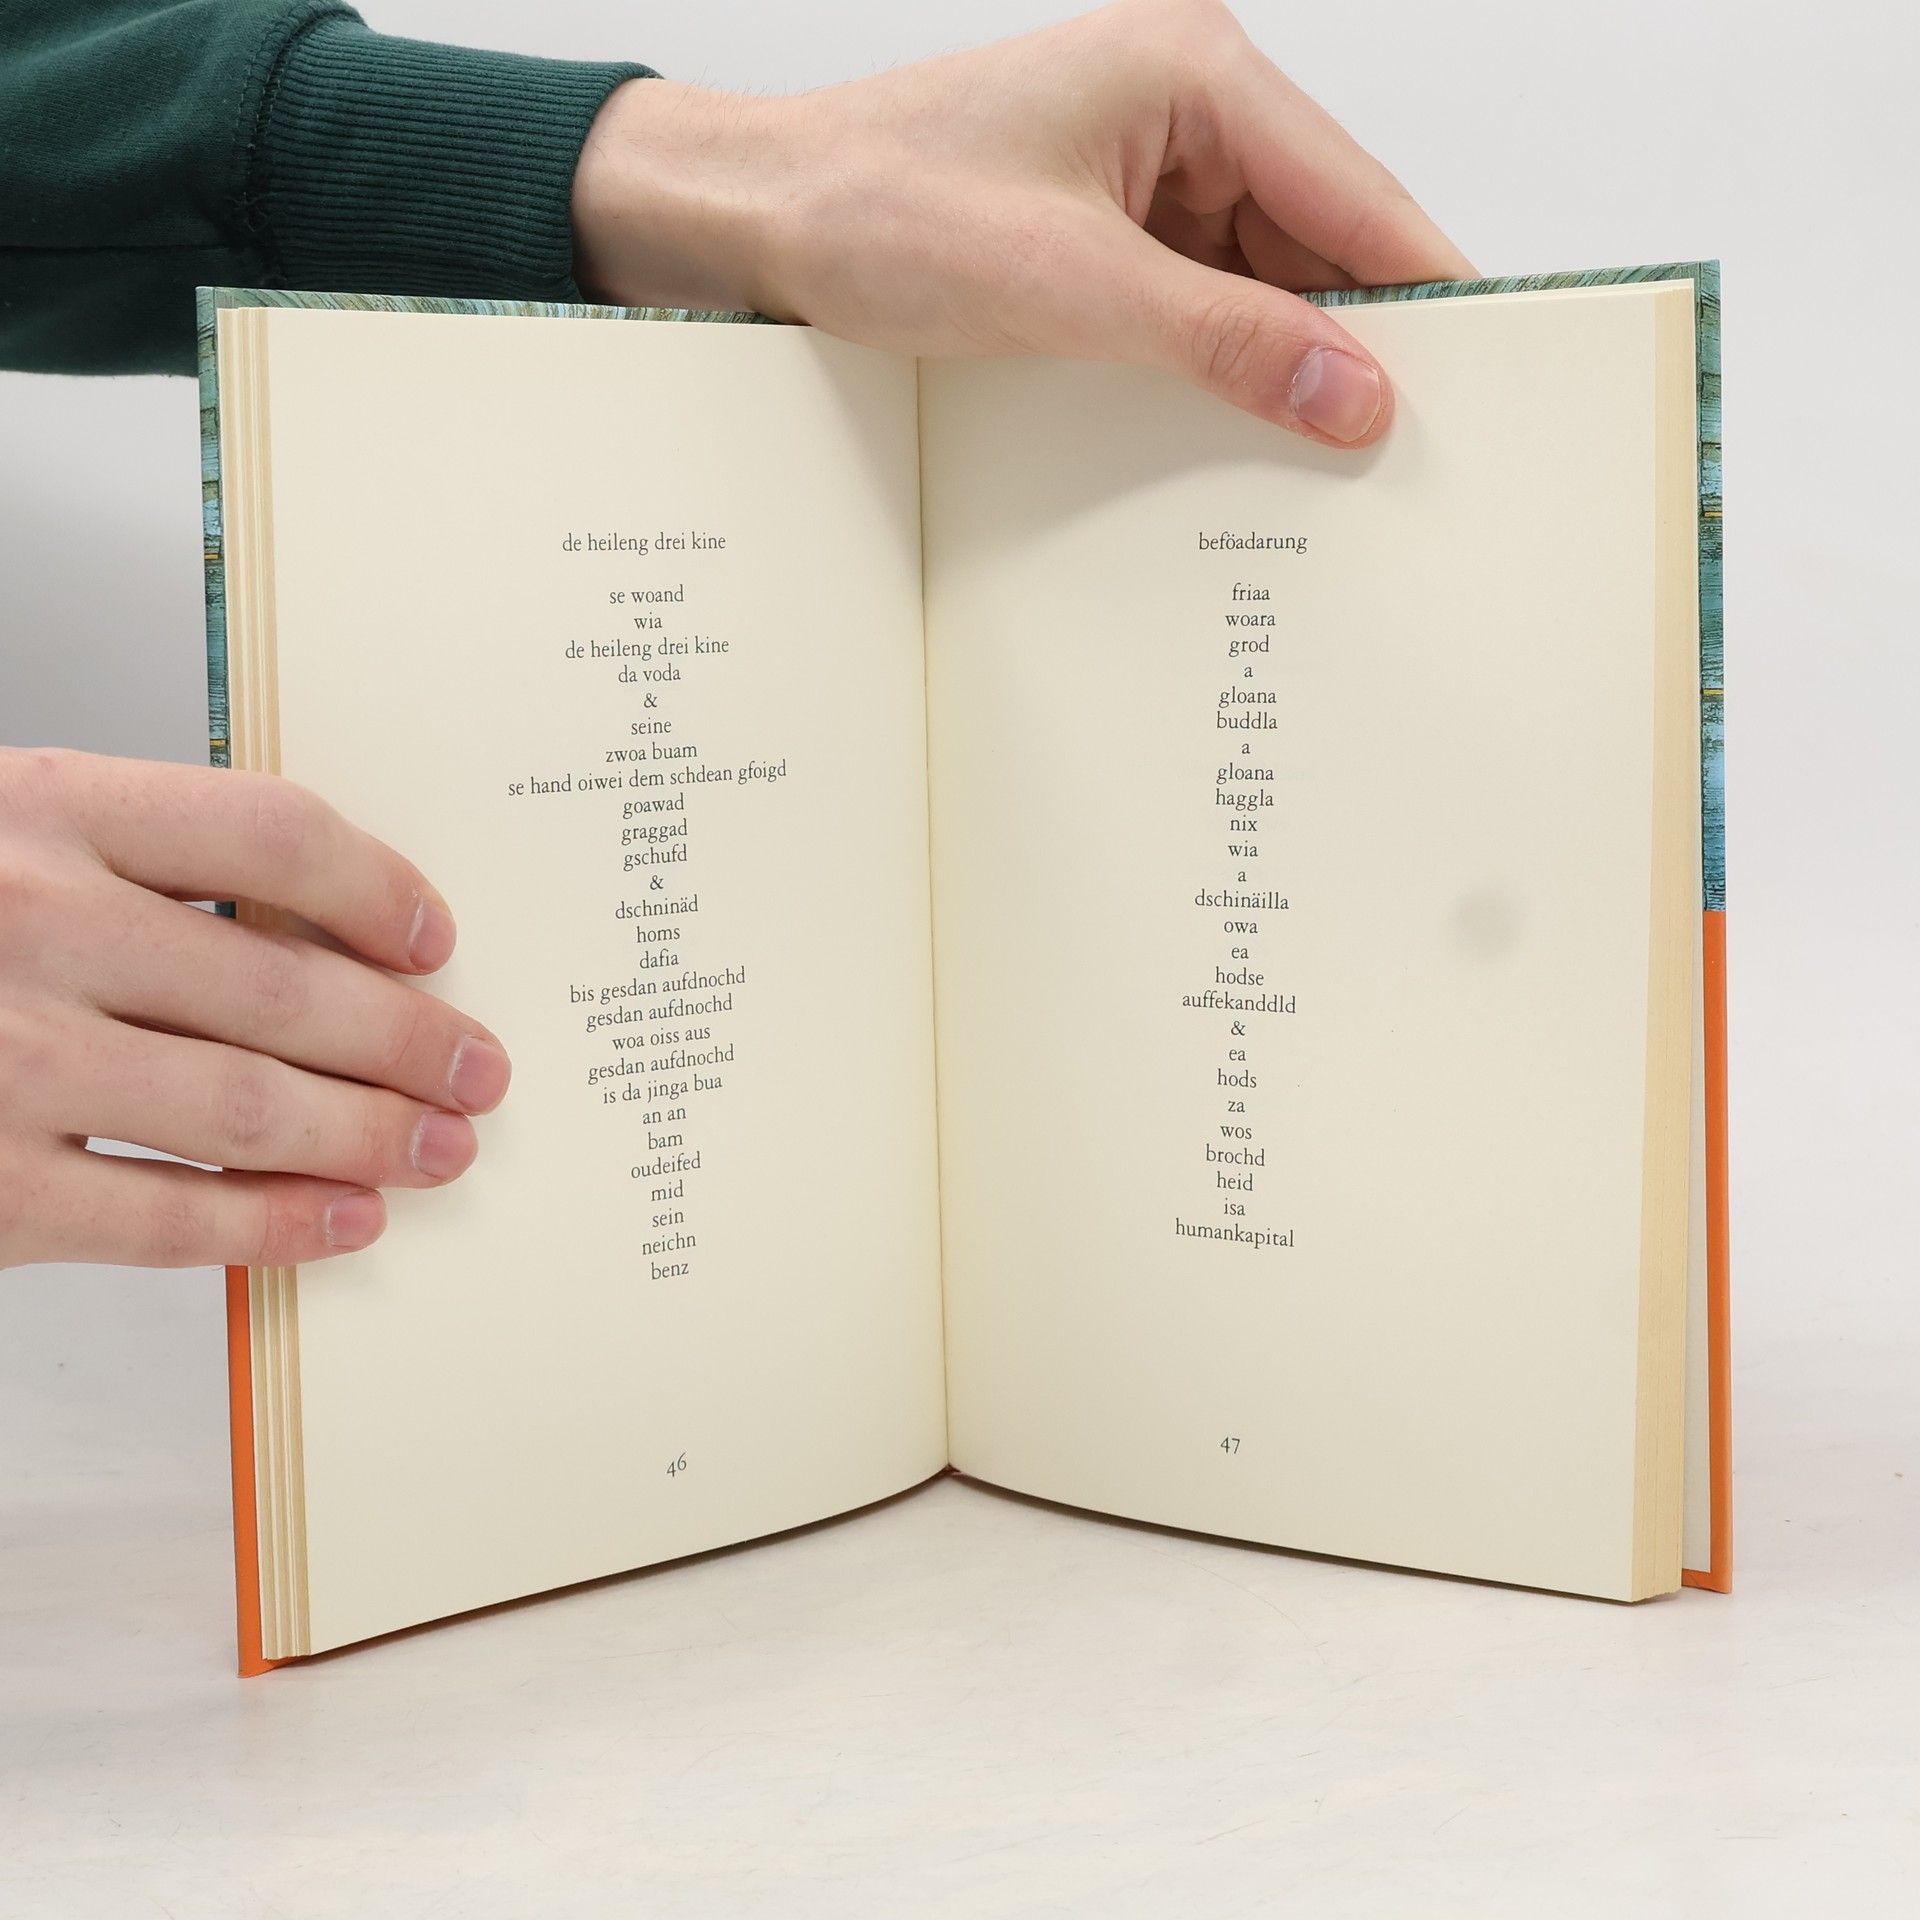 de heileng drei kine
se woand
wia
de heileng drei kine
da voda
&
seine
zwoa buam
se hand oiwei dem schdean gfoigd
goawad
graggad
gschufd
&
dschninäd
homs
dafia
bis gesdan aufdnochd
gesdan aufdnochd
woa oiss aus
gesdan aufdnochd
is da jinga bua
an an
bam
oudeifed
mid
sein
neichn
benz
46
beföadarung
friaa
woara
grod
a
gloana
buddla
a
gloana
haggla
nix
wia
a
dschinäilla
owa
ea
hodse
auffekanddld
&
ea
hods
za
wos
brochd
heid
isa
humankapital
47